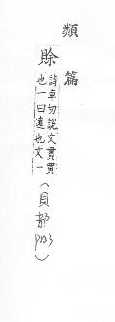 類篇
賒
詩車切說文貰買
也一曰遠也文一
(貝部